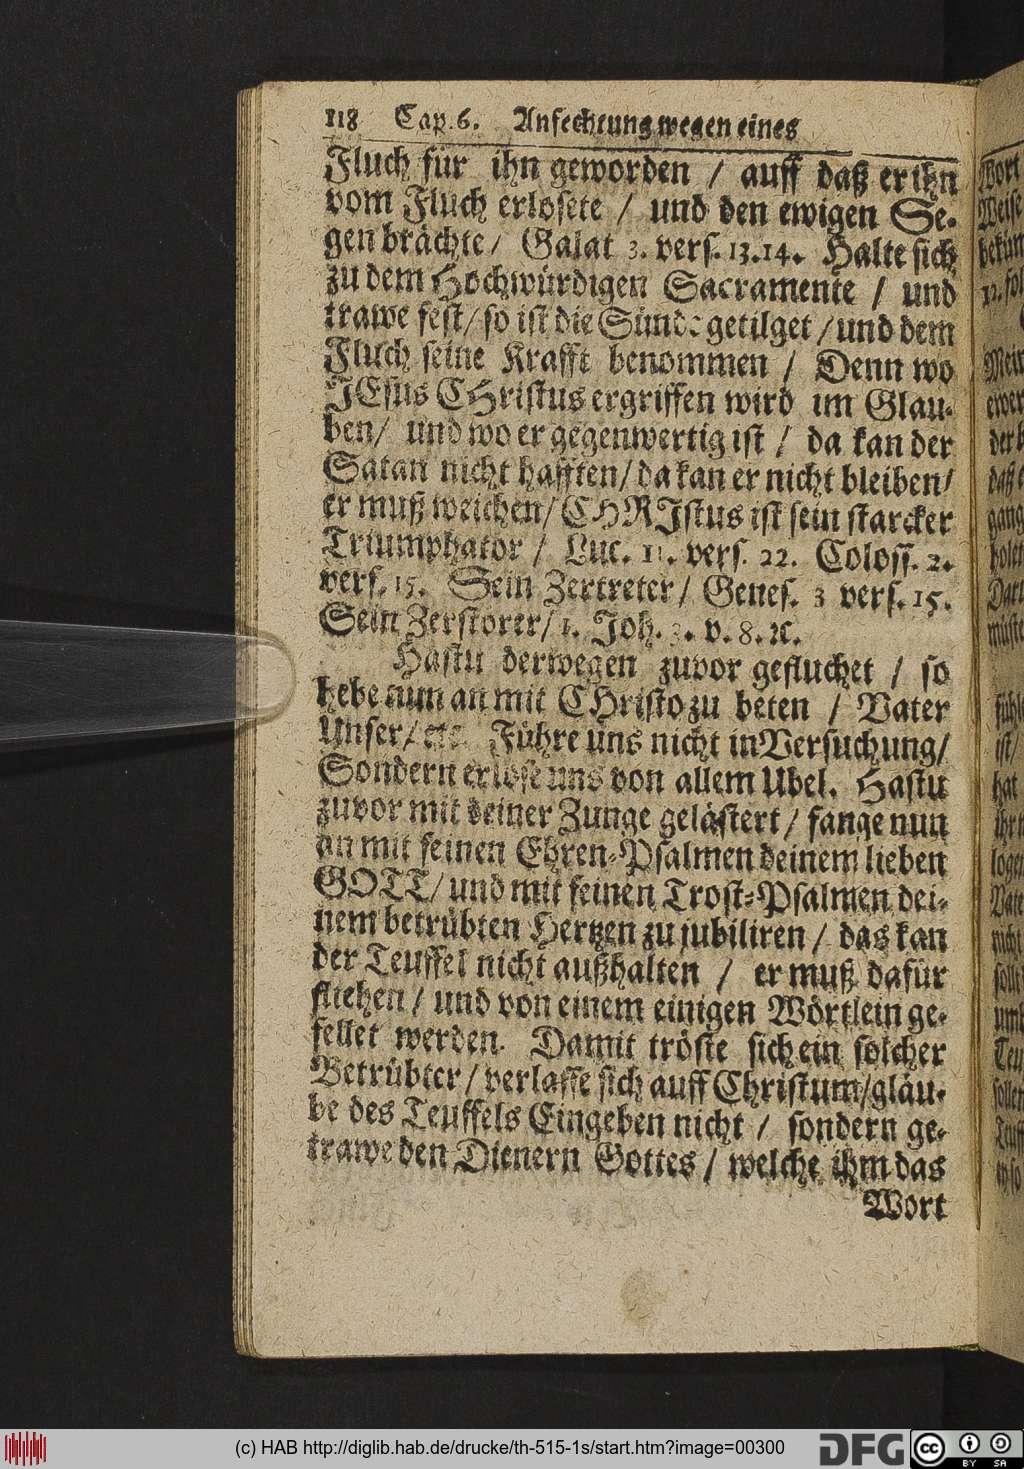 118 Cap. 6. Anfechtung wegen eines
Fluch für ihn geworden / auff daß er ihn
vom Fluch erlosete / und den ewigen Se-
gen brächte / Galat 3. vers. 13.14. Halte sich
zu dem Hochwürdigen Sacramente / und
trawe fest / so ist die Sünde getilget / und dem
Fluch seine Krafft benommen / Denn wo
JEsus CHristus ergriffen wird im Glau-
ben / und wo er gegenwertig ist / da kan der
Satan nicht hafften / da kan er nicht bleiben /
er muß weichen / CHRJstus ist sein starcker
Triumphator / Luc. 11. vers. 22. Coloss. 2.
vers. 15. Sein Zertreter / Genes. 3 vers. 15.
Sein Zerstorer / 1. Joh. 3. v. 8. ꝛc.
Hastu derwegen zuvor gefluchet / so
hebe nun an mit CHristo zu beten / Vater
Unser / etc. Führe uns nicht in Versuchung /
Sondern erlöse uns von allem Ubel. Hastu
zuvor mit deiner Zunge gelästert / fange nun
an mit feinen Ehren-Psalmen deinem lieben
GOTT / und mit feinen Trost-Psalmen dei-
nem betrübten Hertzen zu jubiliren / das kan
der Teuffel nicht außhalten / er muß dafür
fliehen / und von einem einigen Wörtlein ge-
fellet werden. Damit tröste sich ein solcher
Betrübter / verlasse sich auff Christum / gläu-
be des Teuffels Eingeben nicht / sondern ge-
trawe den Dienern Gottes / welche ihm das
Wort
(c) HAB http://diglib.hab.de/drucke/th-515-1s/start.htm?image=00300
DFG
cc BY SA